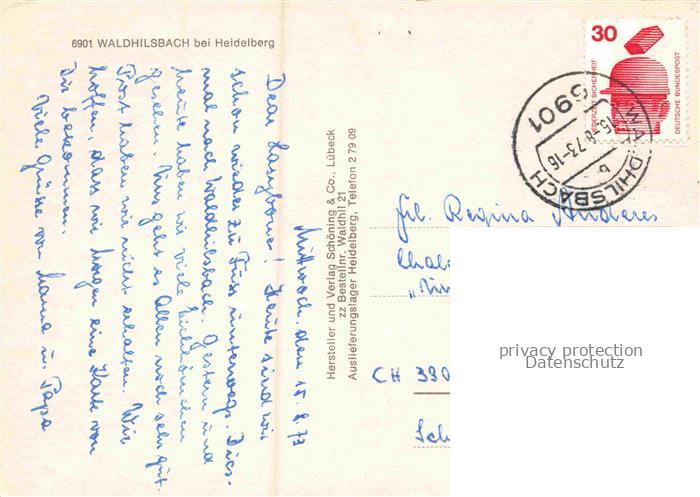 6901 WALDHILSBACH bei Heidelberg
Mittwoch, den 15.8.73
Dear Lazybone! Heute sind wir
schon wieder zu Fuss unterwegs. Dies-
mal nach Waldhilsbach. Gestern und
heute haben wir viele Eichhörnchen
gesehen. Uns geht es Allen noch sehr gut.
Post haben wir nicht erhalten. Wir
hoffen, dass wir morgen eine Karte von
Dir bekommen.
Viele Grüsse von Mama u. Papa
Hersteller und Verlag Schöning & Co., Lübeck
zz Bestellnr. Waldhil 21
Auslieferungslager Heidelberg, Telefon 2 79 09
30
JEDERZEIT SICHERHEIT
DEUTSCHE BUNDESPOST
6901
15.-8.73-16
b
WALDHILSBACH
Frl. Regina Anderes
Chal
CH 390
Sch
privacy protection
Datenschutz